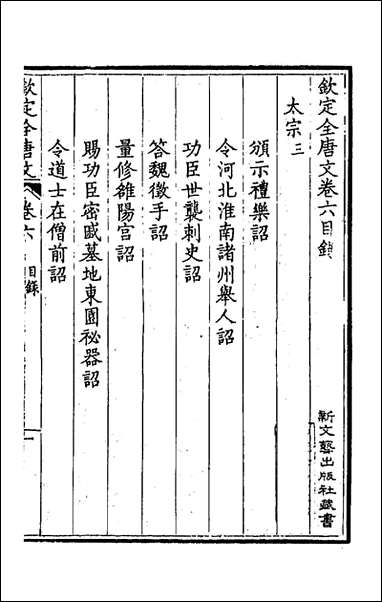 欽定全唐文卷六目錄
新文藝出版社藏書
太宗三
頒示禮樂詔
令河北淮南諸州舉人詔
功臣世襲刺史詔
答魏徵手詔
量修雒陽宮詔
賜功臣密戚墓地東園祕器詔
令道士在僧前詔
欽定全唐文
卷六
目錄
一